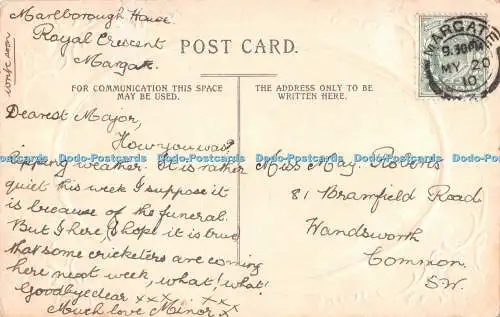 Marlborough House
Royal Crescent
Margate.
write soon
POST CARD.
FOR COMMUNICATION THIS SPACE
MAY BE USED.
THE ADDRESS ONLY TO BE
WRITTEN HERE.
MARGATE
9.30PM
MY 20
10
Dearest Major,
How you was?
Ripping weather. It is rather
quiet this week I suppose it
is because of the funeral.
But I here, I hope it is true
that some cricketers are coming
here next week, what! what!
Goodbye dear xxx xxx
Much love Minor x
Miss May. Roberts
81 Bramfield Road
Wandsworth
Common.
S.W.
Dodo-Postcards Dodo-Postcards Dodo-Postcards Dodo-Postcards Dodo-Postcards